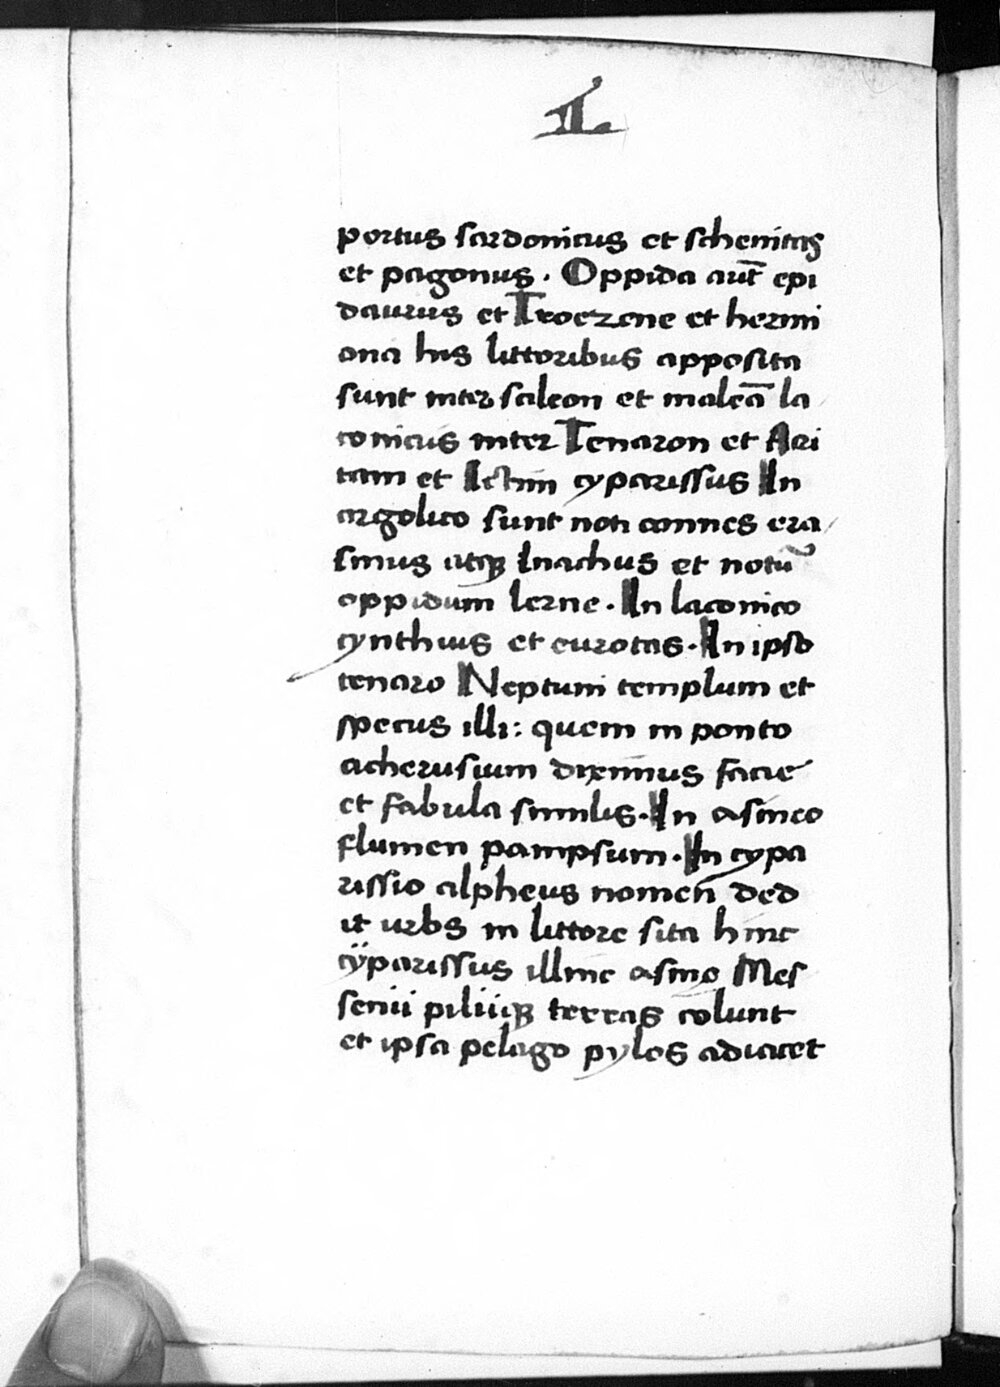 L
portus sardonicus et schenitas
et pagonus . Oppida aut̄ epi
daurus et Troezene et hermi
ona his littoribus apposita
sunt inter scileon et maleā la
conicus inter Tenaron et Acri
tam et Ictim cyparissus In
argolico sunt noti amnes era
sinus atqꝫ Inachus et notū
oppidum lerne . In laconico
cynthius et eurotas . In ipso
tenaro Neptuni templum et
specus illi : quem in ponto
acherusium diximus facie
et fabula similis . In asineo
flumen pampsum . In cypa
rissio alpheus nomen ded
it urbs in littore sita hinc
cÿparissus illinc asino Mes
senii piliiqꝫ terras colunt
et ipsa pelago pylos adiacet